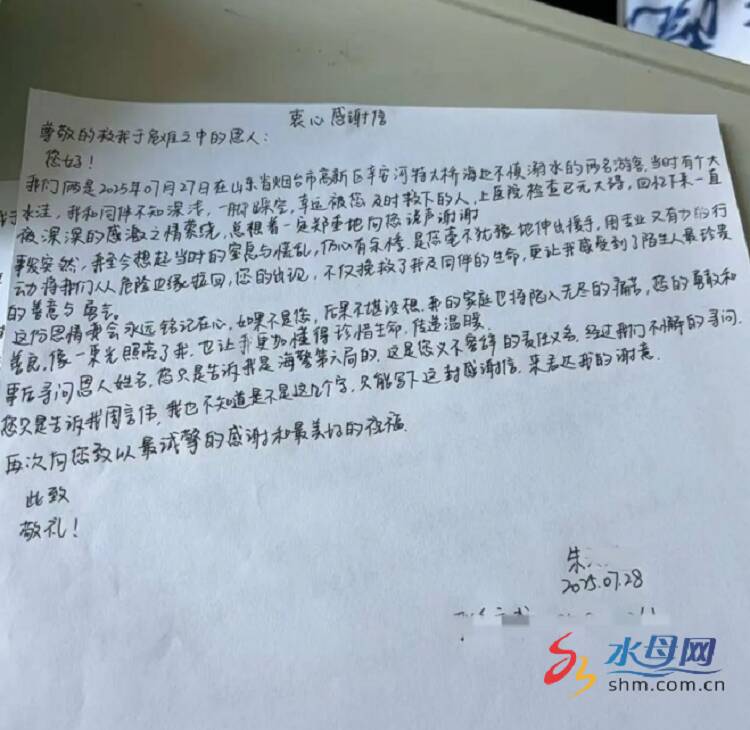 衷心感谢信
尊敬的救我于危难之中的恩人：
您好！
我们俩是2025年07月27日在山东省烟台市高新区辛安河特大桥海边不慎溺水的两名游客，当时有个大
水洼，我和同伴不知深浅，一脚踩空，幸运被您及时救下的人，上医院检查已无大碍，回忆下来一直
被深深的感激之情萦绕，总想着一定郑重地向您说声谢谢
事发突然，我至今想起当时的窒息与慌乱，仍心有余悸，是您毫不犹豫地伸出援手，用专业又有力的行
动将我们从危险边缘拉回，您的出现，不仅挽救了我及同伴的生命，更让我感受到了陌生人最珍贵
的善意与勇气。
这份恩情我会永远铭记在心，如果不是您，后果不堪设想，我的家庭也将陷入无尽的痛苦，您的勇敢和
善良，像一束光照亮了我，也让我更加懂得珍惜生命，传递温暖。
事后寻问恩人姓名，您只是告诉我是海警第六局的，这是您义不容辞的责任义务，经过我们不懈的寻问，
您只是告诉我周言伟，我也不知道是不是这几个字，只能写下这封感谢信，来表达我的谢意
再次向您致以最诚挚的感谢和最美好的祝福
此致
敬礼！
朱
2025.07.28
水母网
shm.com.cn